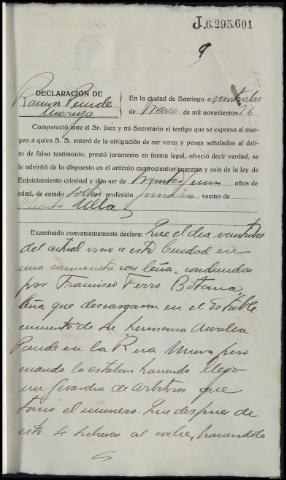 J.6.295.601
9
DECLARACIÓN DE
Ramon Pende
En la ciudad de Santiago a veintiseis
de Marzo de mil novecientos 26
Compareció ante el Sr. Juez y mi Secretario el testigo que se expresa al margen
a quien S. S. enteró de la obligación de ser veraz y penas señaladas al delito
de falso testimonio, prestó juramento en forma legal, ofreció decir verdad, se
le advirtió de lo dispuesto en el artículo cuatrocientos cuarenta y seis de la ley de
Enjuiciamiento criminal y dijo ser de años de
edad, de estado soltero profesión vecino de
Puente Ulla
Examinado convenientemente declara: Que el dia veintidos
del actual vino a esta Ciudad en
una camioneta con leña, conducida
por Francisco Ferro Botana,
leña que descargaron en el Estable
cimiento de su hermana Amalia
Pende en la Rua Nueva pero
cuando la estaban llegó
un Guardia de Arbitrios que
tomó el numero. Que despues de
esto se al coche,